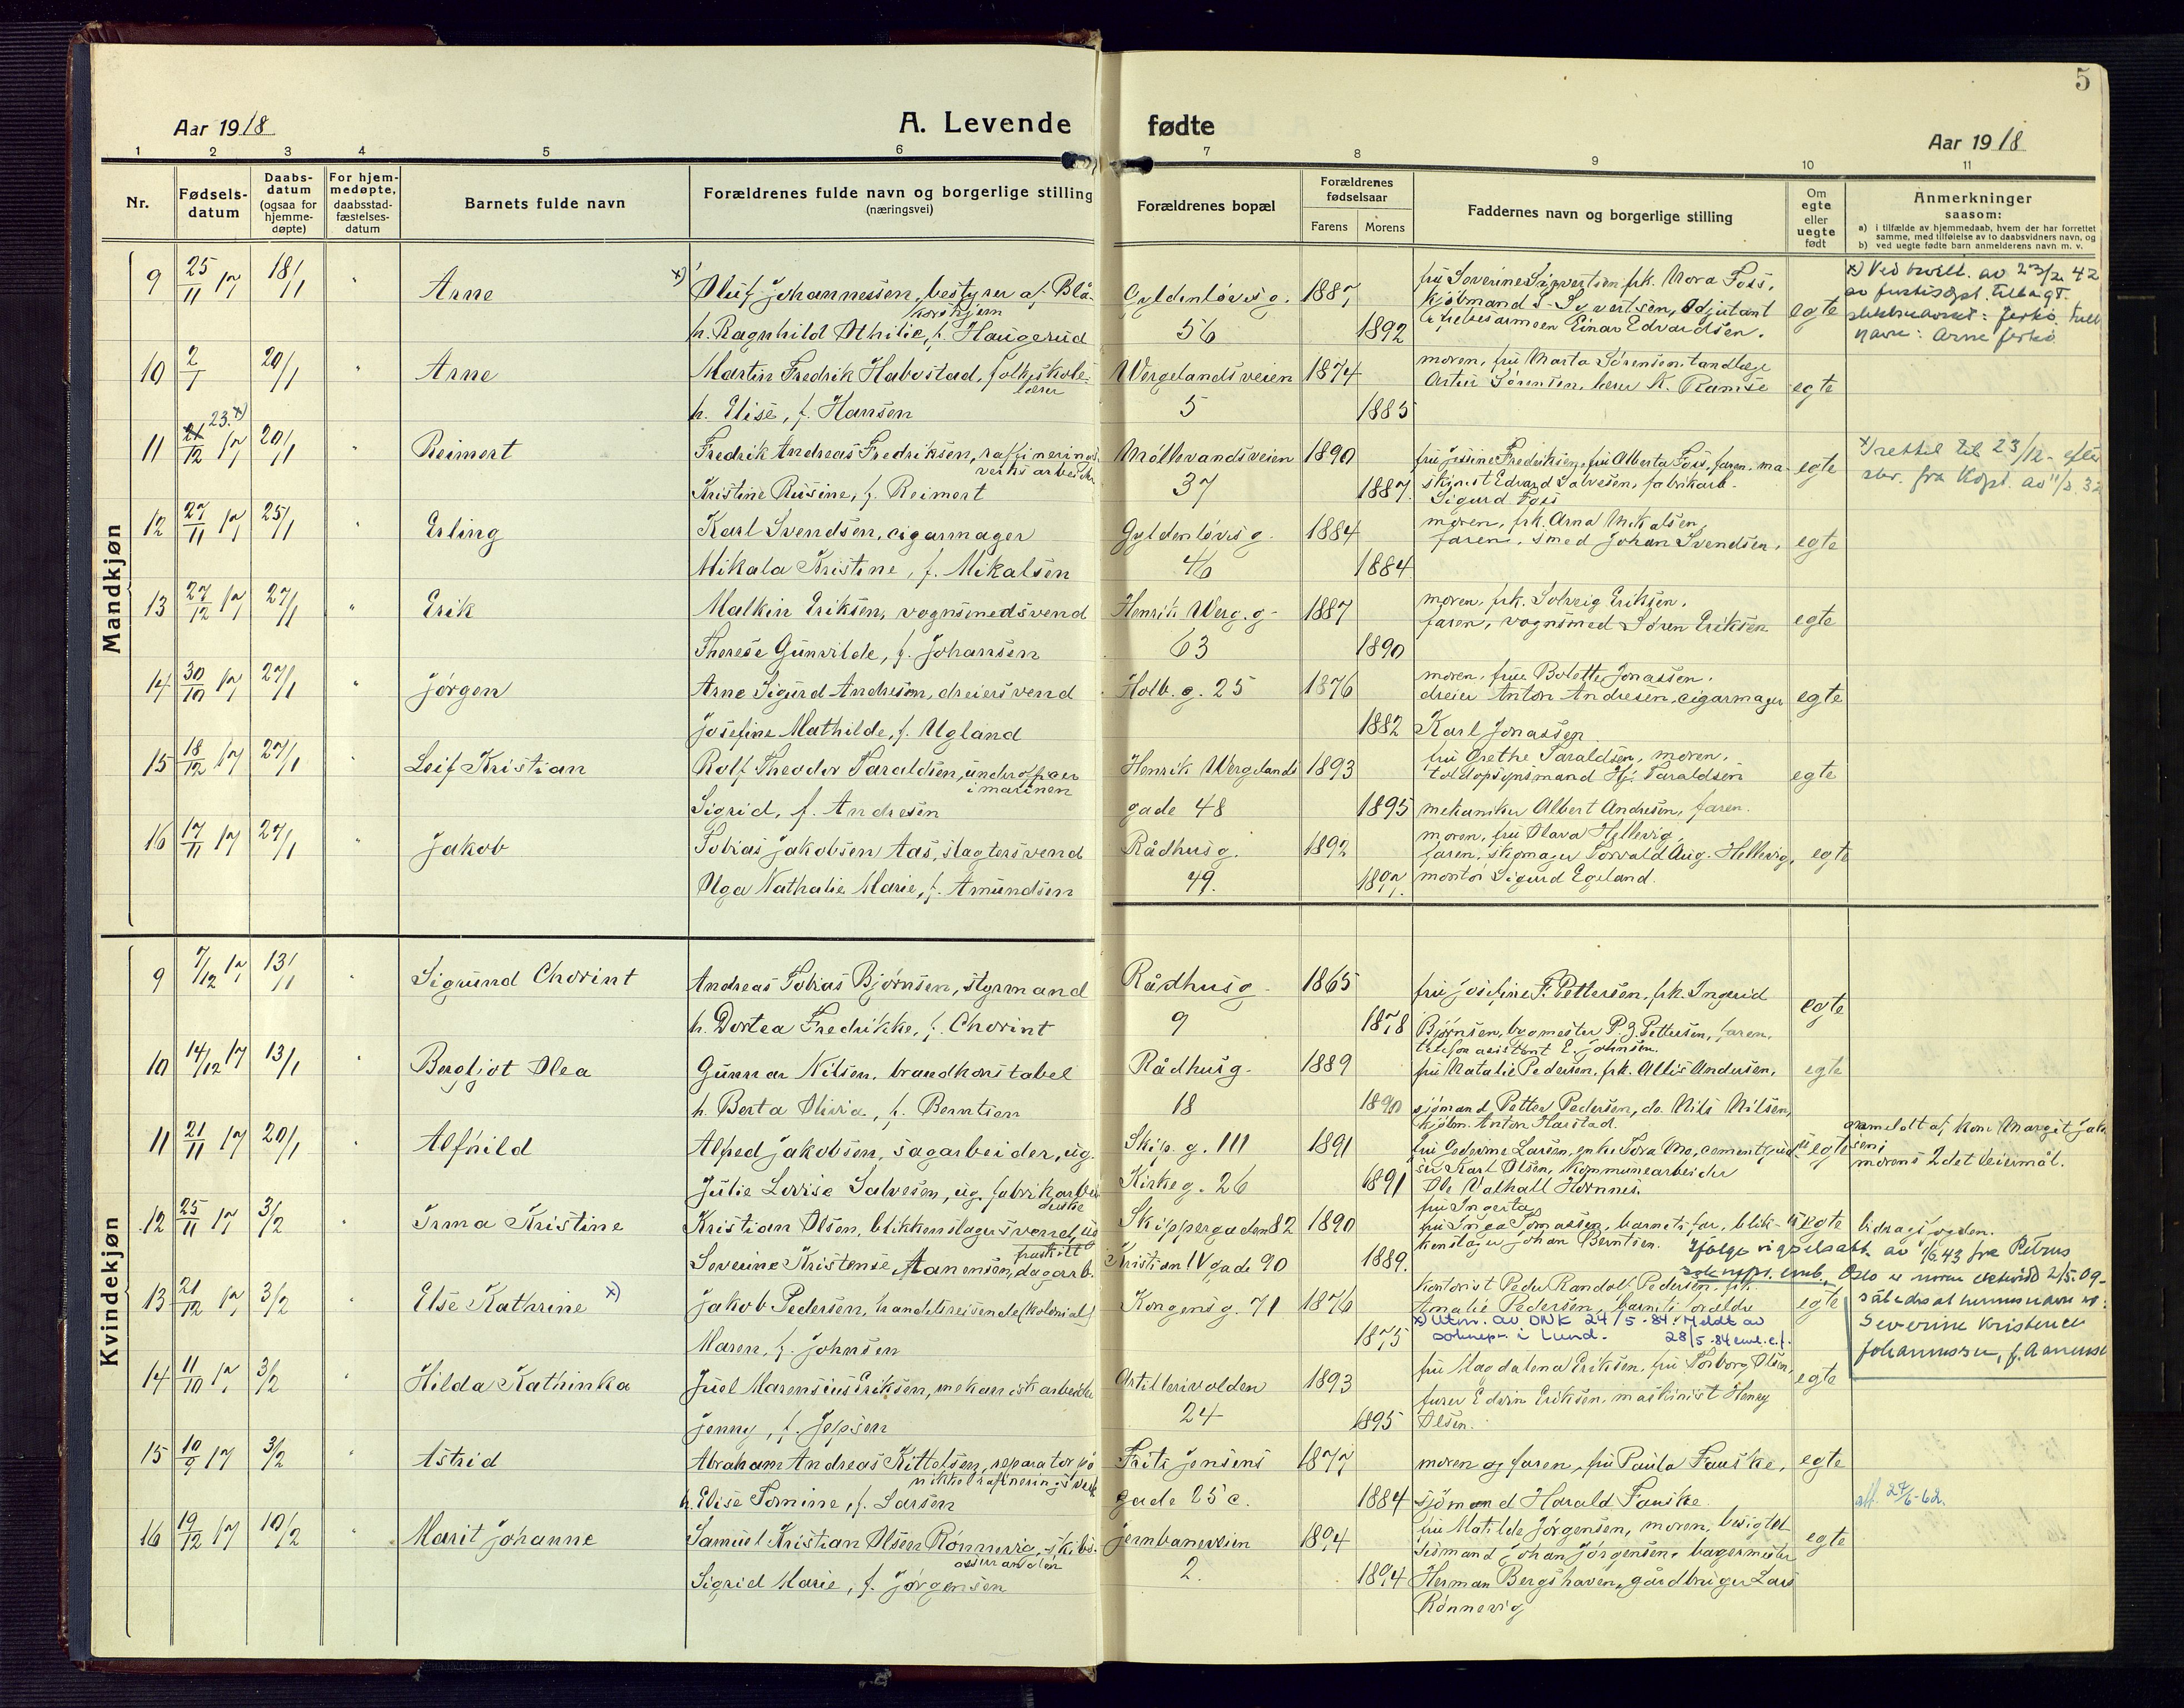 5
Aar 1918
A. Levende
fødte
Aar 1918
1 2 3 4 5 6 7 8 9 10 11
Nr.
Fødsels-
datum
Daabs-
datum
(ogsaa for
hjemme-
døpte)
For hjem-
medøpte,
daabsstad-
fæstelses-
datum
Barnets fulde navn
Forældrenes fulde navn og borgerlige stilling
(næringsvei)
Forældrenes bopæl
Forældrenes
fødselsaar
Farens Morens
Faddernes navn og borgerlige stilling
Om
egte
eller
uegte
født
Anmerkninger
saasom:
a) i tilfælde av hjemmedaab, hvem der har forrettet
samme, med tilføielse av to daabsvidners navn, og
b) ved uegte fødte barn anmelderens navn m. v.
Mandkjøn
9 25/11 17 18/1 " Arne x) Oluf Johannessen, bestyrer af Blå-
korshjem
Gyldenløvisg. 1887 fru Severine Sigvertsen, frk. Nora Foss,
h. Ragnhild Othilie, f. Haugerud 56 1892
Einar Edvardsen.
egte
x) Ved bevill. av 23/2 42
navn: Arne
10 2/1 20/1 " Arne Martin Fredrik Habostad, folkeskole-
lærer
Wergelandsveien 1874 moren, fru Marta Sørensen, tandlæge
h. Elise, f. Hansen 5 1885
Artur Sørensen, lærer K. Ramse egte
11 21/12 17 23. x) 20/1 " Reimert Fredrik Andreas Fredriksen, raffinerings-
verks arbeider
Møllevandsveien 1890 fru Jessine Fredriksen, fru Alberta Foss, faren, ma-
Kristine Rusine, f. Reimert 37 1887
skinist Edvard Salvesen, fabrikarb.
Sigurd Foss
egte
x) rettet til 23/12 - efter
skr. fra Kpt. av 11/2 32
12 27/11 17 25/1 " Erling Karl Svendsen, cigarmager Gyldenløvisg. 1884 moren, frk. Arna Mikalsen,
faren, smed Johan Svendsen, egte
Mikala Kristine, f. Mikalsen 46 1884
13 27/12 17 27/1 " Erik Malkin Eriksen, vognsmedsvend Henrik Werg. g. 1887 moren, frk. Solveig Eriksen,
faren, vognsmed Søren Eriksen egte
Therese Gunvilde, f. Johansen 63 1890
14 30/10 17 27/1 " Jørgen Arne Sigurd Andresen, dreiersvend Holb. g. 25 1876 moren, frue Bolette Jonassen,
dreier Anton Andresen, cigarmager egte
Josefine Mathilde, f. Ugland 1882 Karl Jonassen
15 18/12 17 27/1 " Leif Kristian Rolf Theodor Taraldsen, underofficer
i marinen
Henrik Wergelands 1893 fru Grethe Taraldsen, moren,
toldopsynsmand Hj. Taraldsen egte
Sigrid, f. Andresen gade 48 1895 mekaniker Albert Andresen, faren.
16 17/11 17 27/1 " Jakob Tobias Jakobsen Aas, slagtersvend Rådhusg. 1892 moren, fru Olava Hellevig,
faren, skomager Torvald Aug. Hellevig, egte
Olga Nathalie Marie, f. Amundsen 49. 1897 montør Sigurd Egeland.
Kvindekjøn
9 7/12 17 13/1 " Sigrund Chorint Andreas Tobias Bjørnsen, styrmand Rådhusg. 1865 fru Josefine F. Pettersen, frk. Ingerid
h. Dortea Fredrikke, f. Chorint 9 1878 Bjørnsen, bygmester P. J. Pettersen, faren,
telefonassistent E. Johnsen. egte
10 14/12 17 13/1 " Bergljot Olea Gunnar Nilsen, brandkonstabel Rådhusg. 1889 fru Natalie Pedersen, frk. Allis Andersen, egte
h. Berta Olivia, f. Berntsen 18 1890 sjømand Petter Pedersen, do. Nils Nilsen,
kjøbm. Anton Harstad.
11 21/11 17 20/1 " Alfhild Alfred Jakobsen, sagarbeider, ug. Skip. g. 111 1891
Julie Lovise Salvesen, ug. fabrikarbei-
derske
Kirkeg. 26 1891
Karl Olsen, kommunearbeider
Ole Valhall Hornnes.
uegte
anmeldt af kone Margit Jak-
sen;
morens 2det leiermål.
12 25/11 17 3/2 " Irma Kristine Kristian Olsen, blikkenslagersvend, ug Skippergaden 82 1890
fru Inga Tomassen, barnets far, blik-
kenslager Johan Berntsen. uegte
bidragsfogden.
Severine Kristense Aanensen, dagarb. fraskilt Kristian IV gade 90 1889.
Ifølge vigselsatt. av 1/6 43 fra Petrus
Oslo er moren
Severine Kristense
Johannessen, f. Aanensen
13 21/12 17 3/2 Else Kathrine x) Jakob Pedersen, handelsreisende (kolonial) Kongensg. 71 1876 kontorist Peder Randolf Pedersen, frk.
Amalie Pedersen, barnets forældre egte
Maren, f. Johnsen 1875
x) Utm. av DNK 24/5-84. Meldt av
soknepr. i Lund. 28/5-84
14 11/10 17 3/2 " Hilda Kathinka Juel Marensius Eriksen, mekanisk arbeider Artillerivolden 1893 fru Magdalena Eriksen, fru Torborg Olsen, egte
furer Edvin Eriksen, maskinist Henry
Jenny, f. Jepsen 24 1895 Olsen.
15 10/9 17 3/2 " Astrid Abraham Andreas Kittelsen, reparatør på
nikkelrafineringsverk
Frits Jensens 1877 moren og faren, fru Paula Fauske, egte
h. Elise Tomine, f. Larsen gade 25 c. 1884 sjømand Harald Fauske.
att. 27/6-62.
16 19/12 17 10/2 " Marit Johanne Samuel Kristian Olsen Rønnevig, skibs-
Jernbaneveien 1894 fru Matilde Jørgensen, moren,
sjømand Johan Jørgensen, bagermester egte
Sigrid Marie, f. Jørgensen 2. 1894 Herman Bergshaven, gårdbruger Lars
Rønnevig